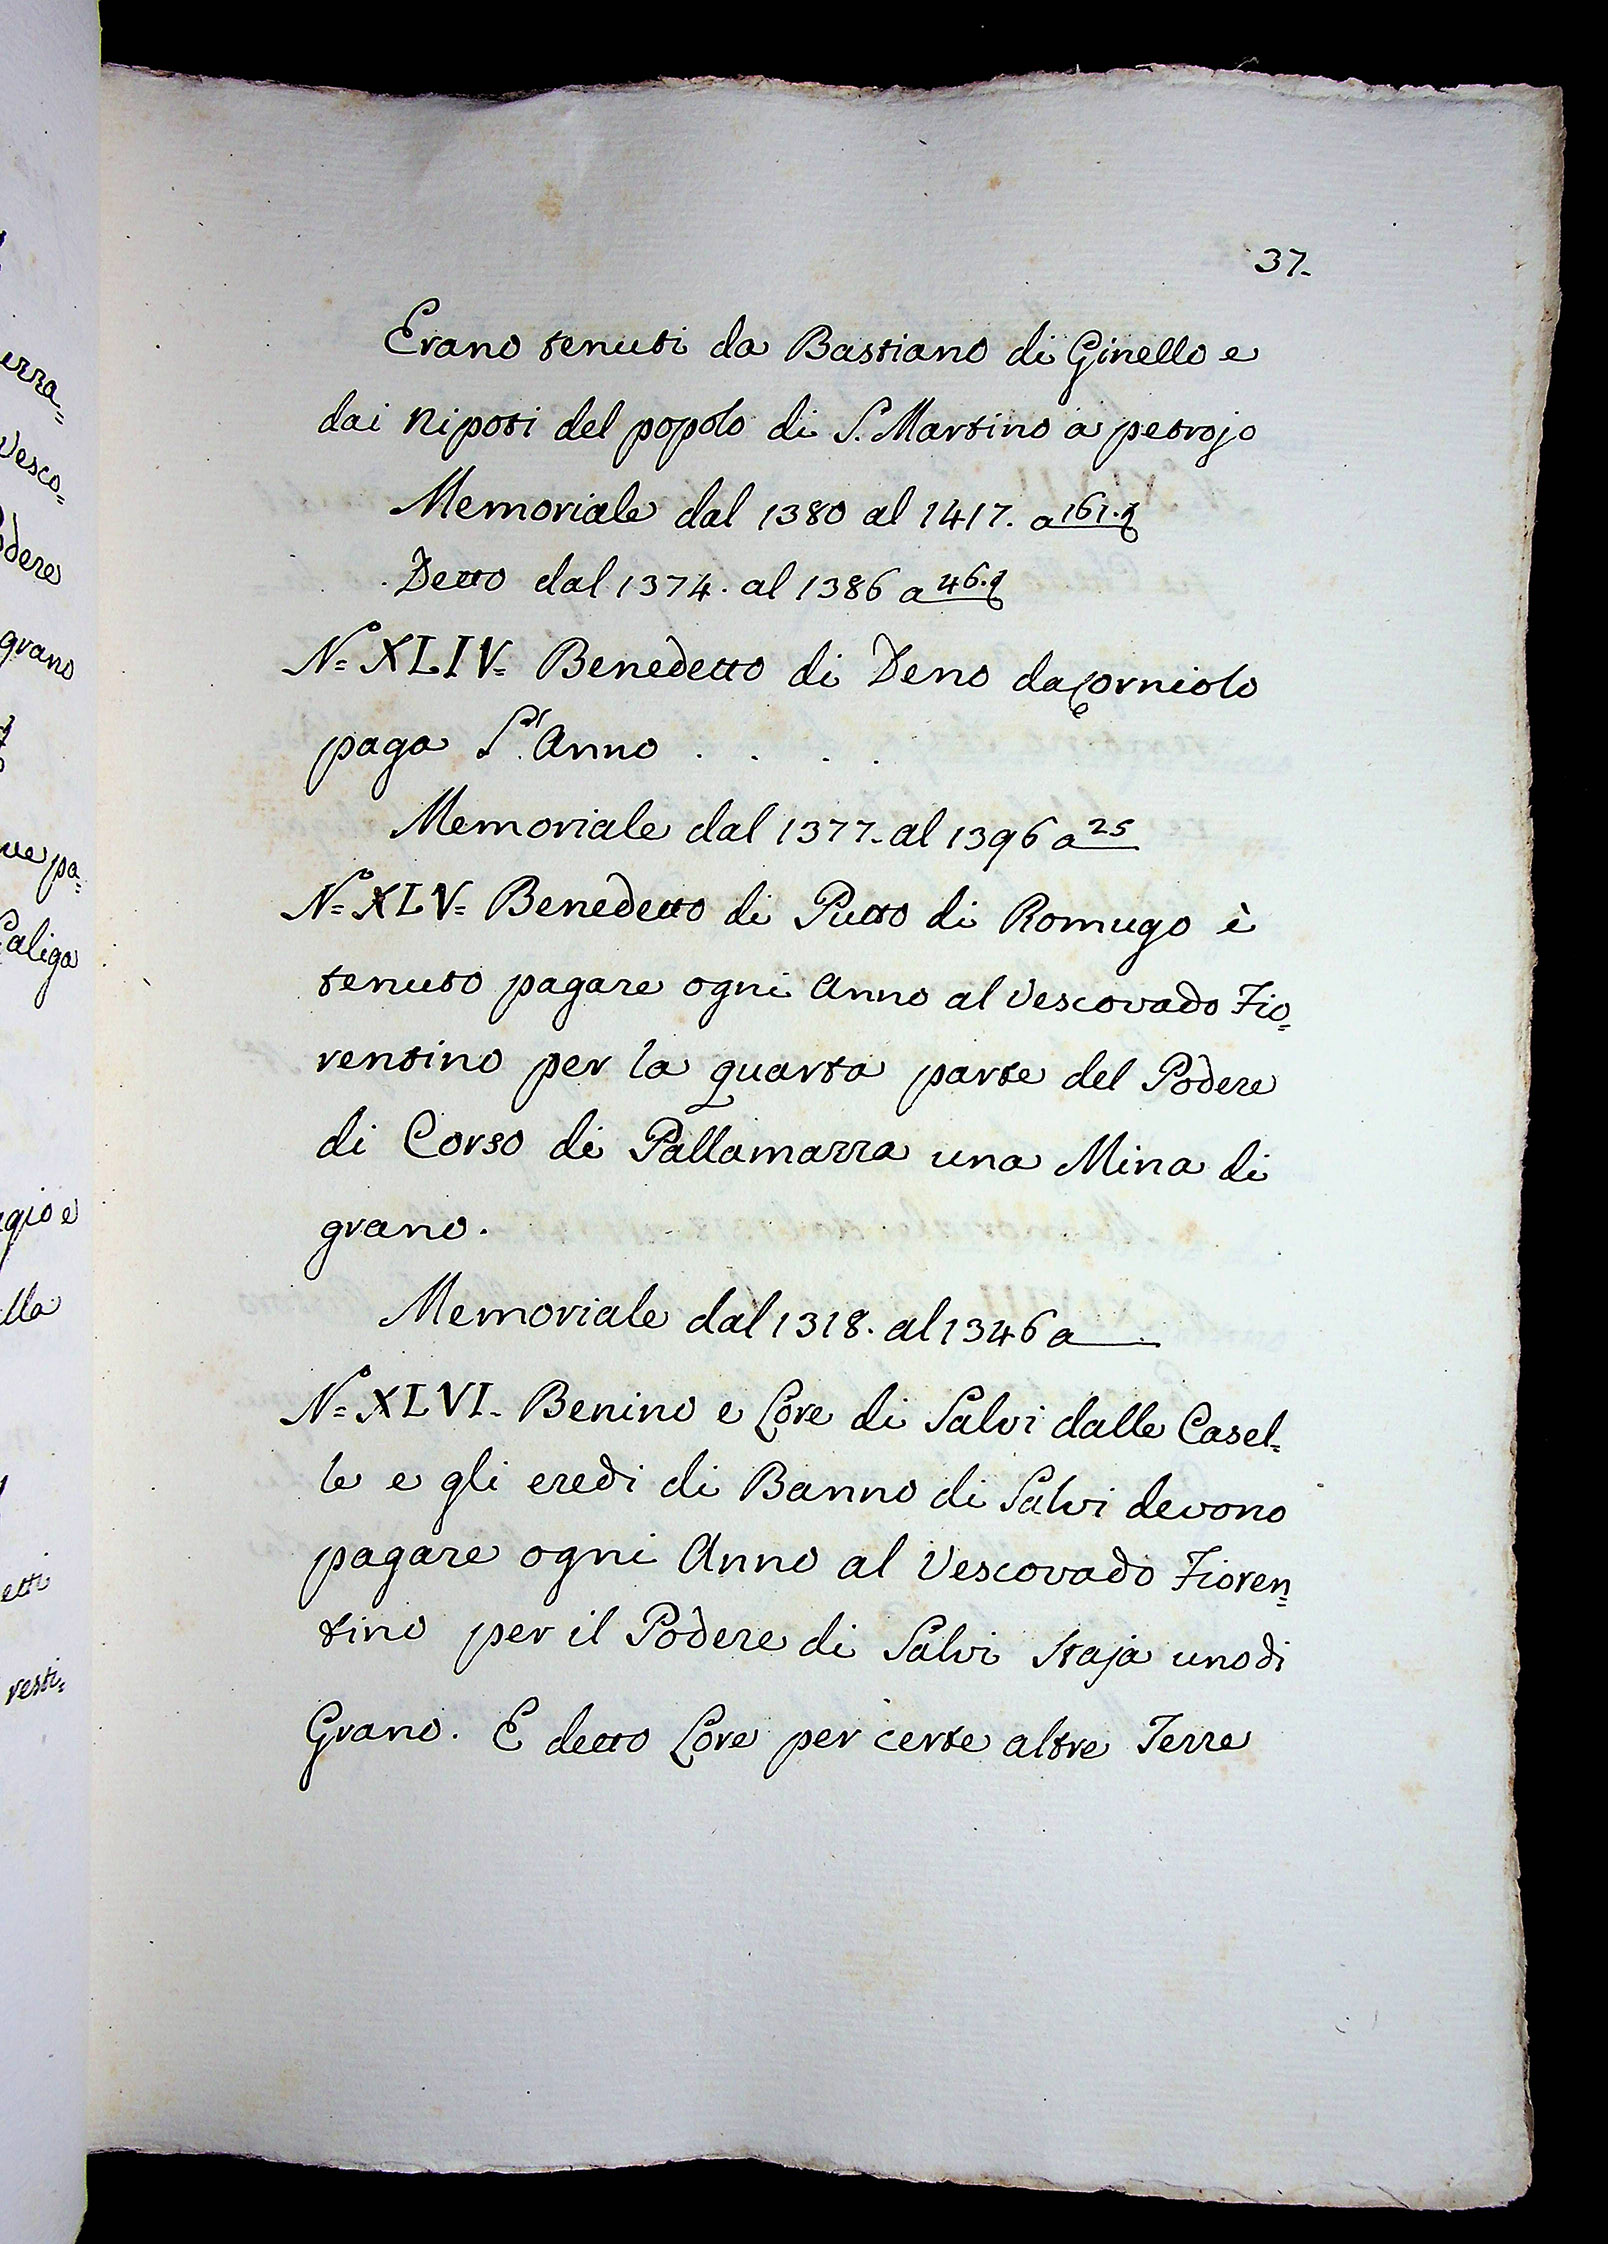 37.
Erano tenuti da Bastiano di Ginello e
dai Nipoti del popolo di S. Martino a petrojo
Memoriale dal 1380 al 1417. a 161.
Detto dal 1374. al 1386 a 46.
N.º XLIV= Benedetto di Deno da Corniolo
paga l'Anno . . . .
Memoriale dal 1377. al 1396 a 25
N.º XLV= Benedetto di Putto di Romugo è
tenuto pagare ogni Anno al Vescovado Fio=
rentino per la quarta parte del Podere
di Corso di Pallamarra una Mina di
grano.
Memoriale dal 1318. al 1346 a
N.º XLVI. Benino e Lore di Salvi dalle Casel=
le e gli eredi di Banno di Salvi devono
pagare ogni Anno al Vescovado Fioren=
tino per il Podere di Salvi Staja uno di
Grano. E detto Lore per certe altre Terre
erra=
Vesco=
odere
grano
ve pa=
Caliga
gio e
lla
etti
vesti=